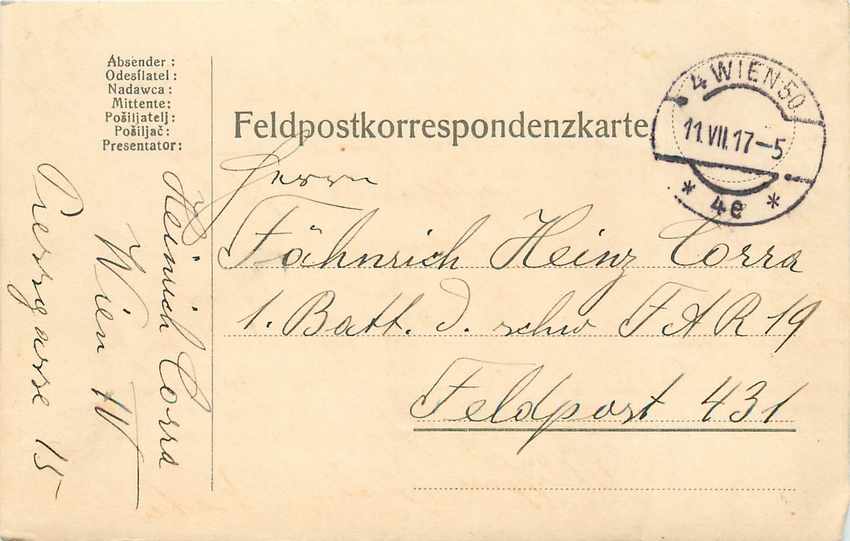 Absender :
Odesílatel :
Nadawca :
Mittente:
Pošiljatelj :
Pošiljač :
Presentator :
Heinrich Corra
Wien IV
Pressgasse 15
Feldpostkorrespondenzkarte
4 WIEN 50
11.VII.17-5
* 4e *
Herrn
Fähnrich Heinz Corra
1. Batt. d. schw FAR 19
Feldpost 431